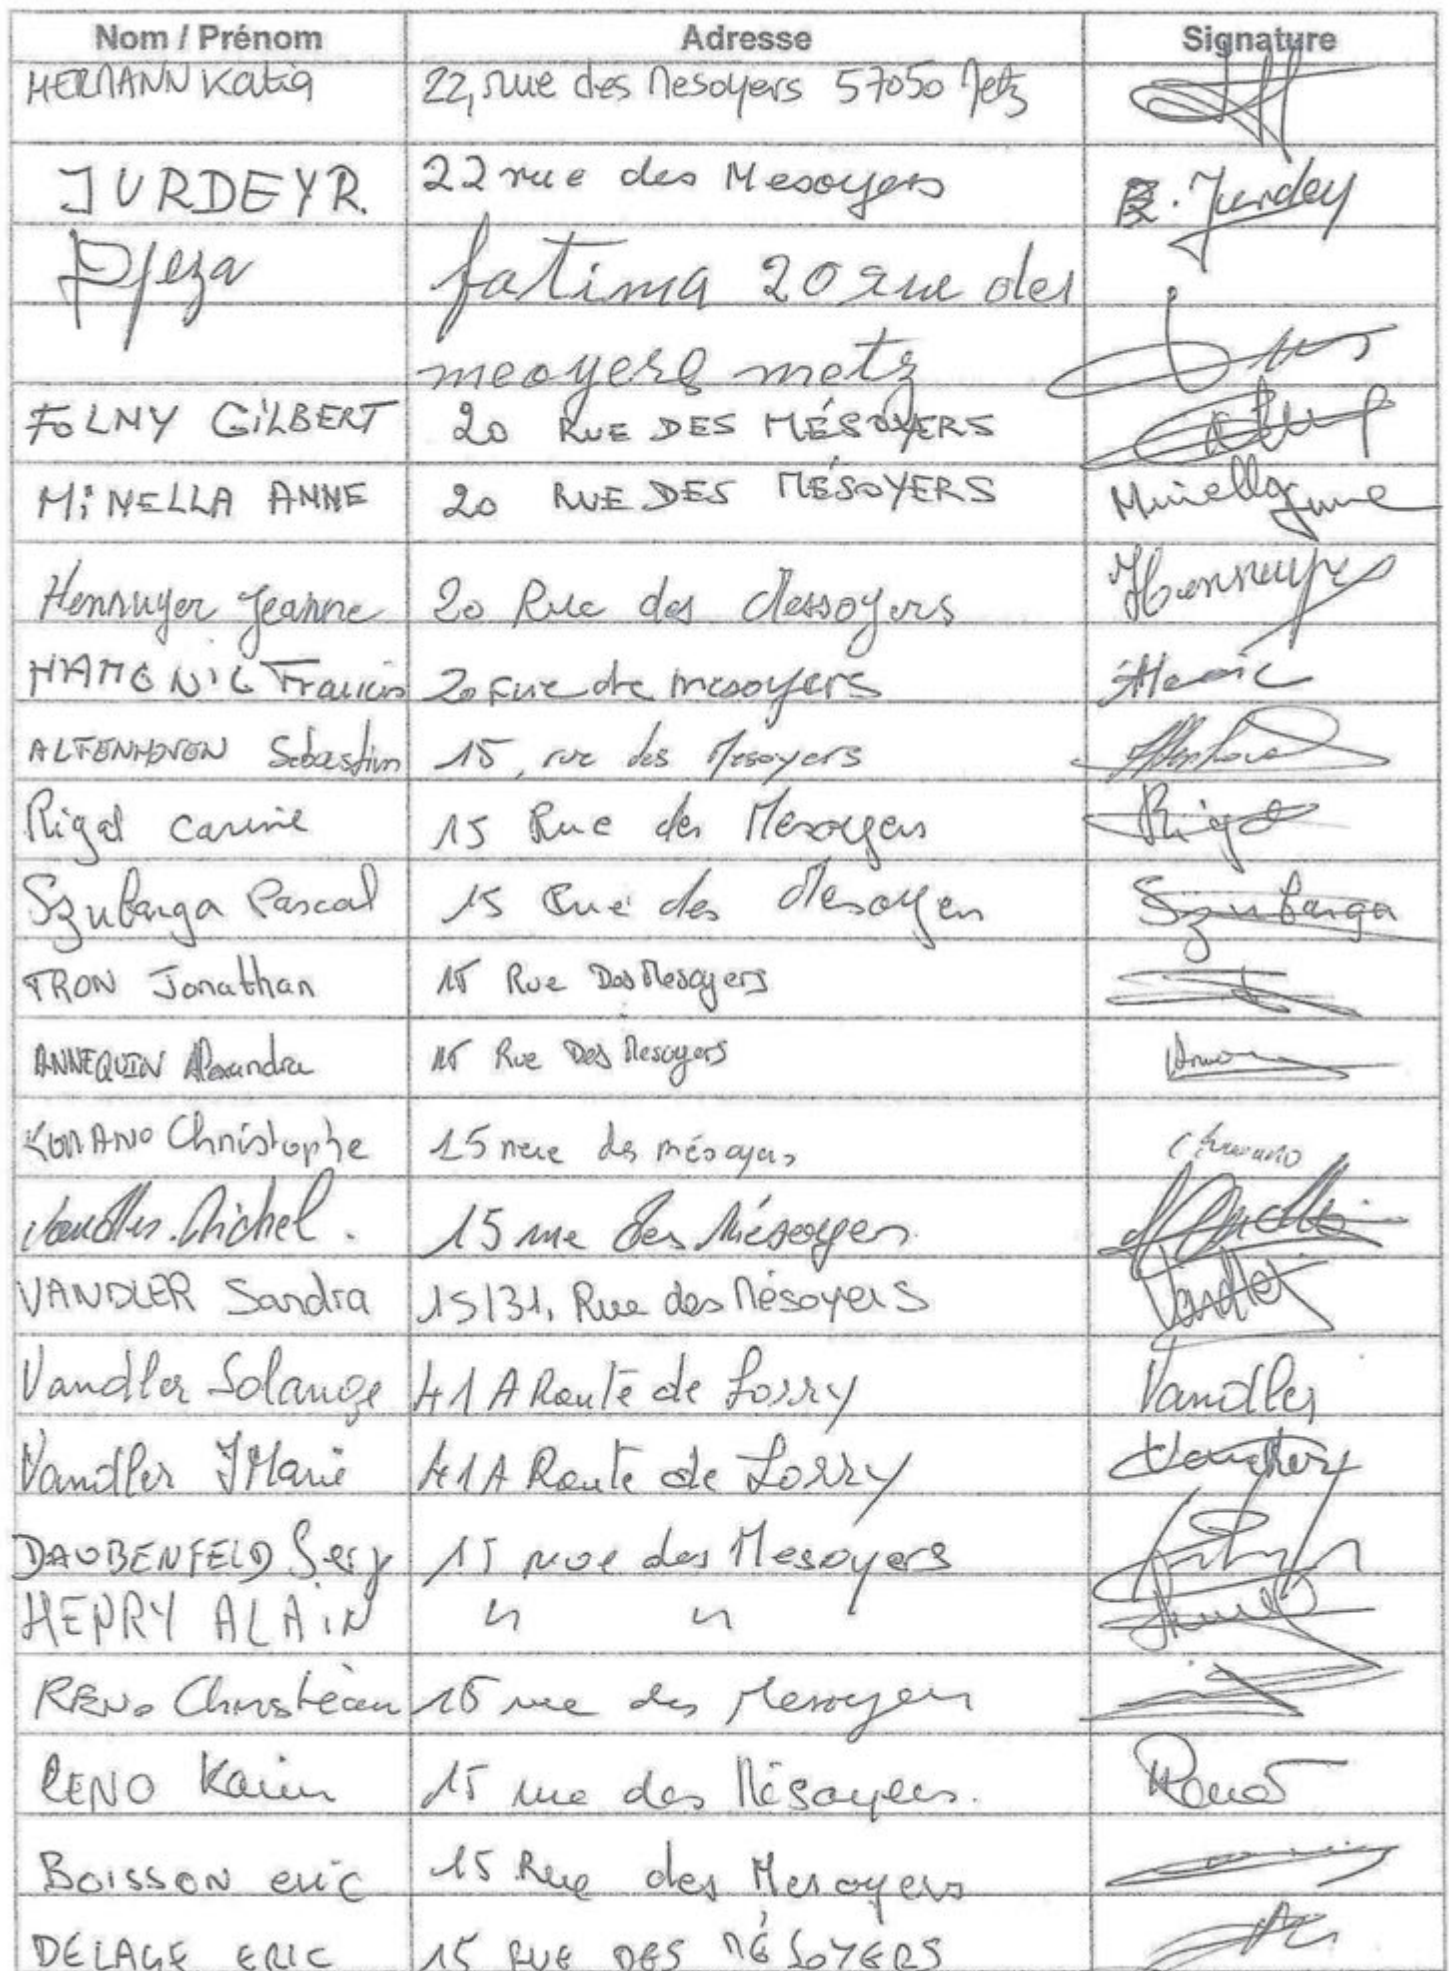 Nom / Prénom Adresse Signature
HERMANN Katia 22, rue des Mesoyers 57050 Metz
JURDEY R. 22 rue des Mesoyers R. Jurdey
Djeza fatima 20 rue des
meoyers metz
FOLNY GILBERT 20 RUE DES MÉSOYERS
MiNELLA ANNE 20 RUE DES MÉSOYERS Minella Anne
Hennuyer Jeanne 20 Rue des Messoyers Hennuyer
HAMONIC Francis 20 rue de mesoyers
ALTENHOVEN Sebastien 15, rue des Mesoyers
Rigal Carine 15 Rue des Mesoyers Rigal
Szubarga Pascal 15 Rue des Mesoyers Szubarga
TRON Jonathan 15 Rue Des Mesoyers
ANNEQUIN Alexandra 15 Rue Des Mesoyers
Christophe 15 rue des mésoyers
Vandler Michel. 15 rue des Mésoyers
VANDLER Sandra 15/31, Rue des Mésoyers Vandler
Vandler Solange 41A Route de Lorry Vandler
Vandler JMarie 41A Route de Lorry Vandler
DAUBENFELD Serg 15 rue des Mesoyers
HENRY ALAIN " "
RENO Christian 15 rue des Mesoyers
RENO Karin 15 rue des Mésoyers. Reno
BOISSON eric 15 Rue des Mesoyers
DELAGE ERIC 15 RUE DES MÉSOYERS